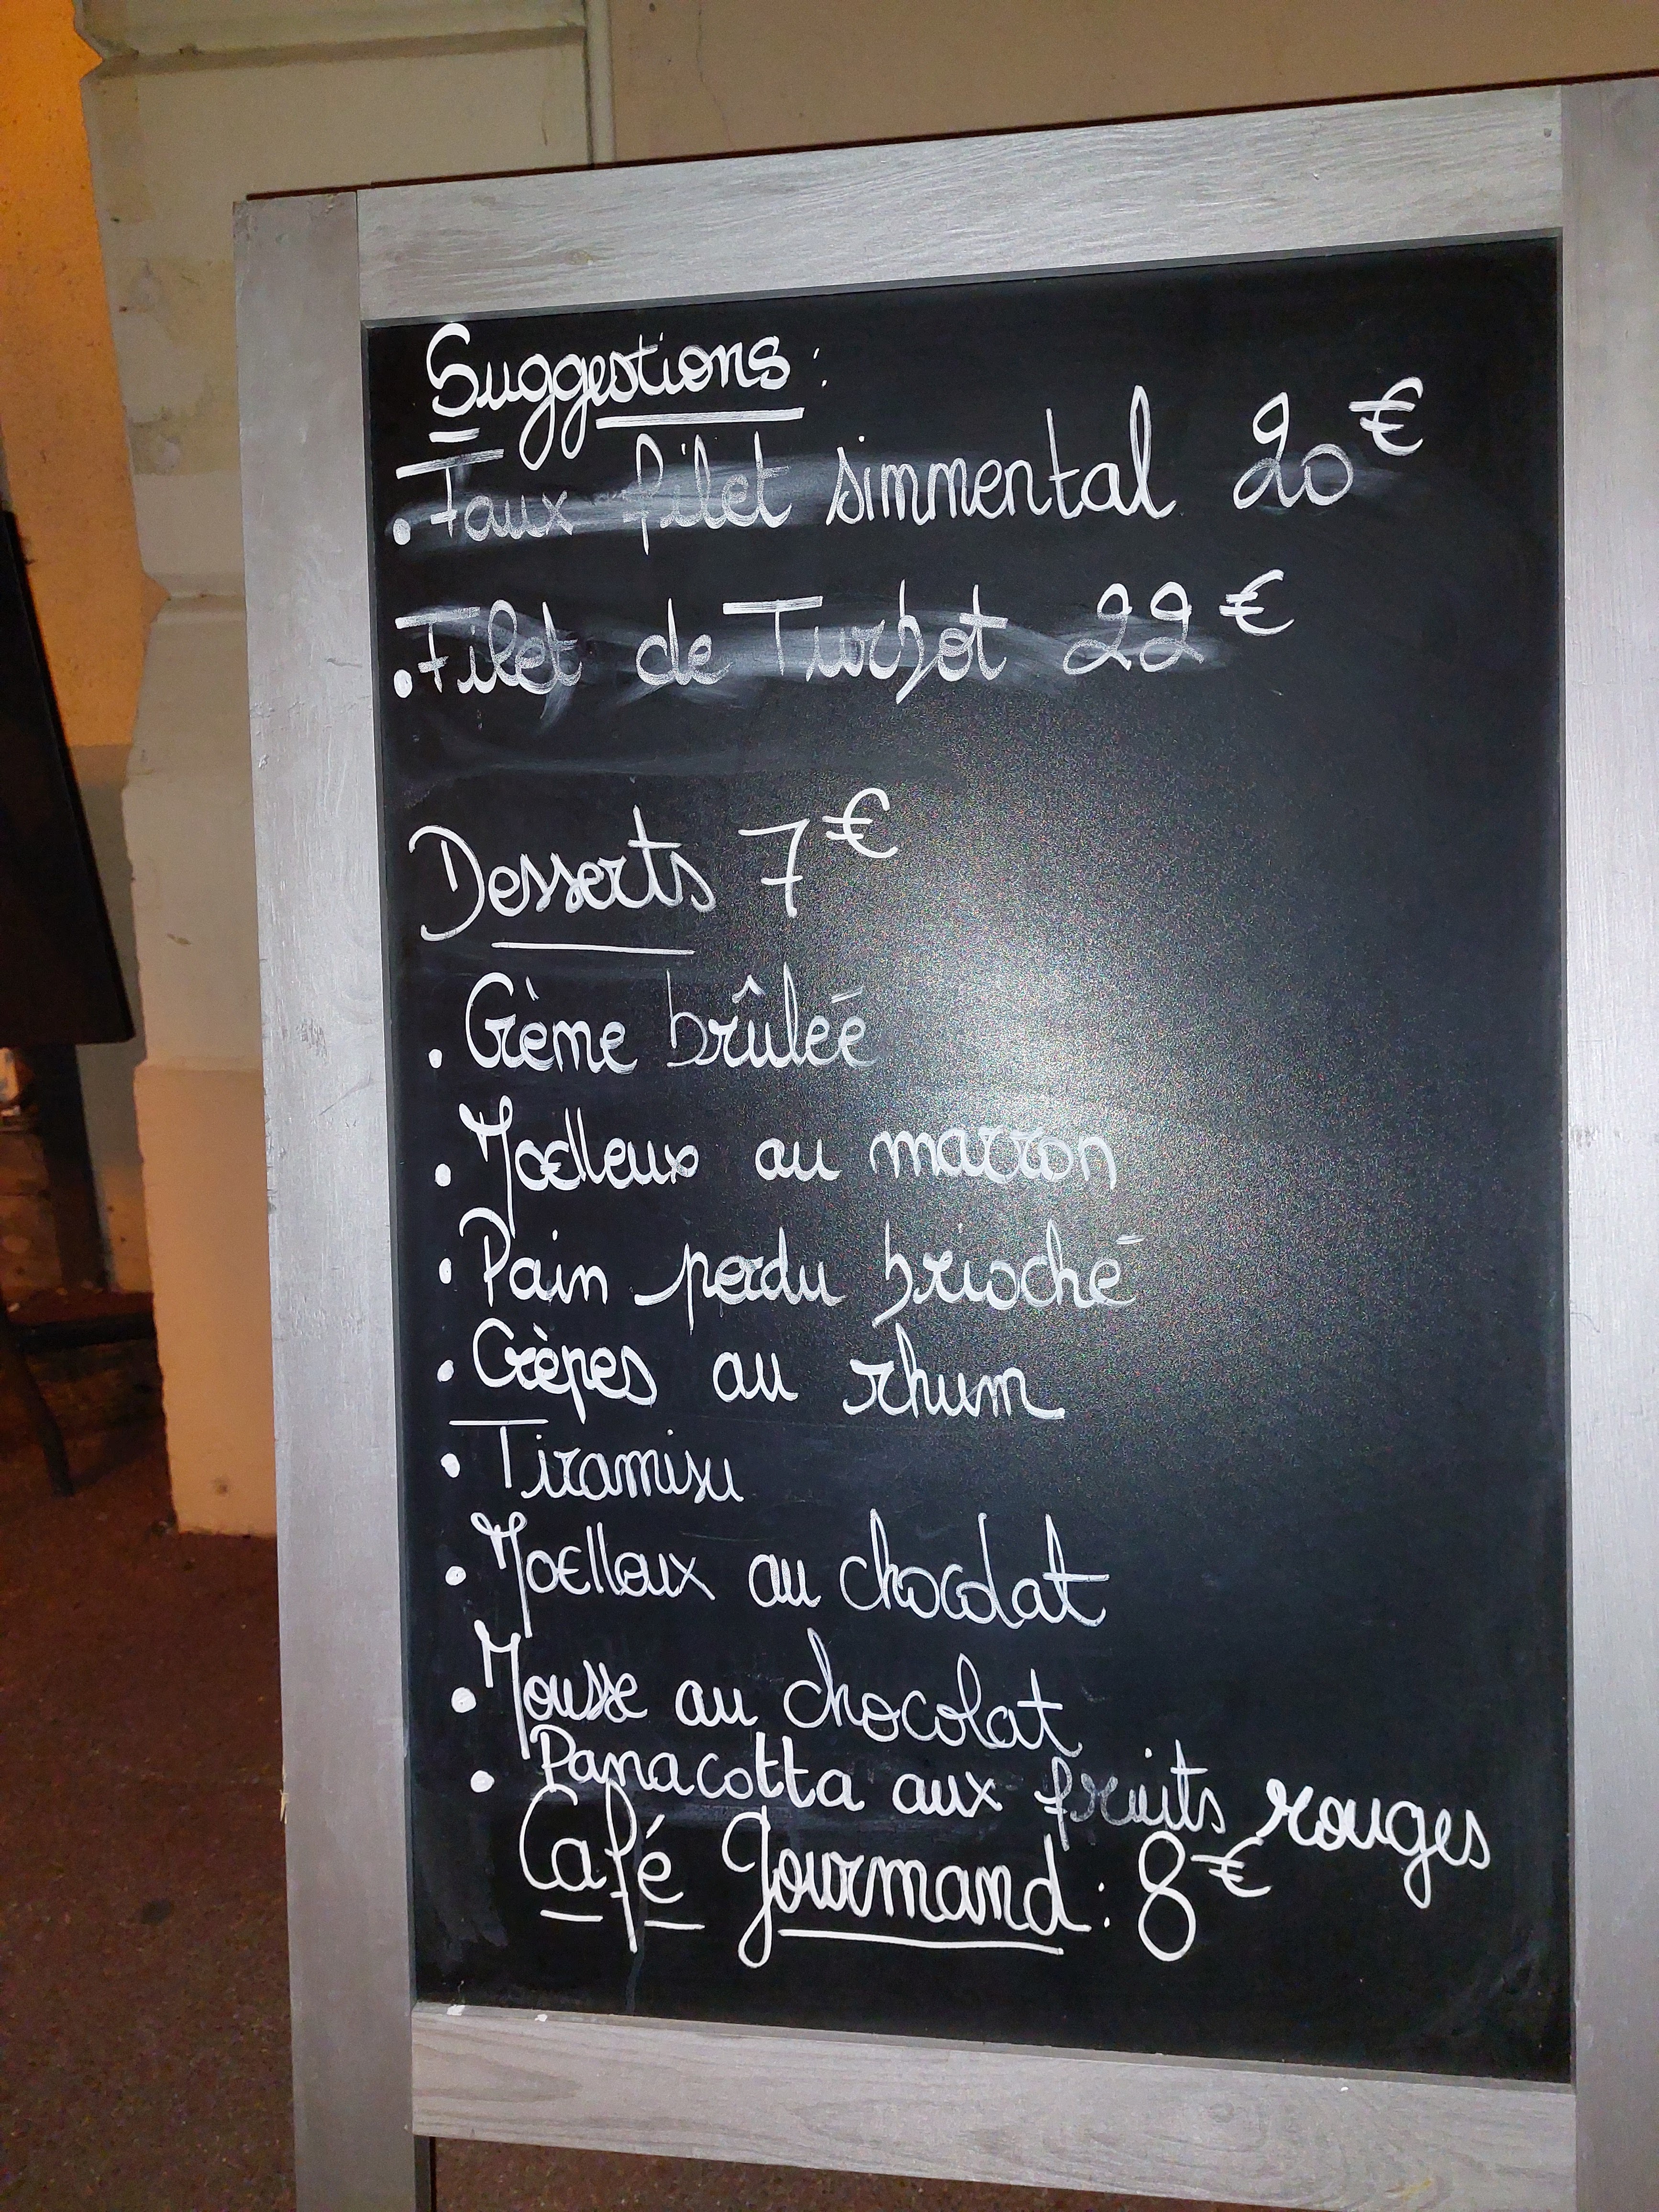 Suggestions :
• Faux filet simmental 20€
• Filet de Turbot 22€
Desserts 7€
• Crème brûlée
• Moelleux au marron
• Pain perdu brioché
• Crèpes au rhum
• Tiramisu
• Moelleux au chocolat
• Mousse au chocolat
• Panacotta aux fruits rouges
Café Gourmand : 8€